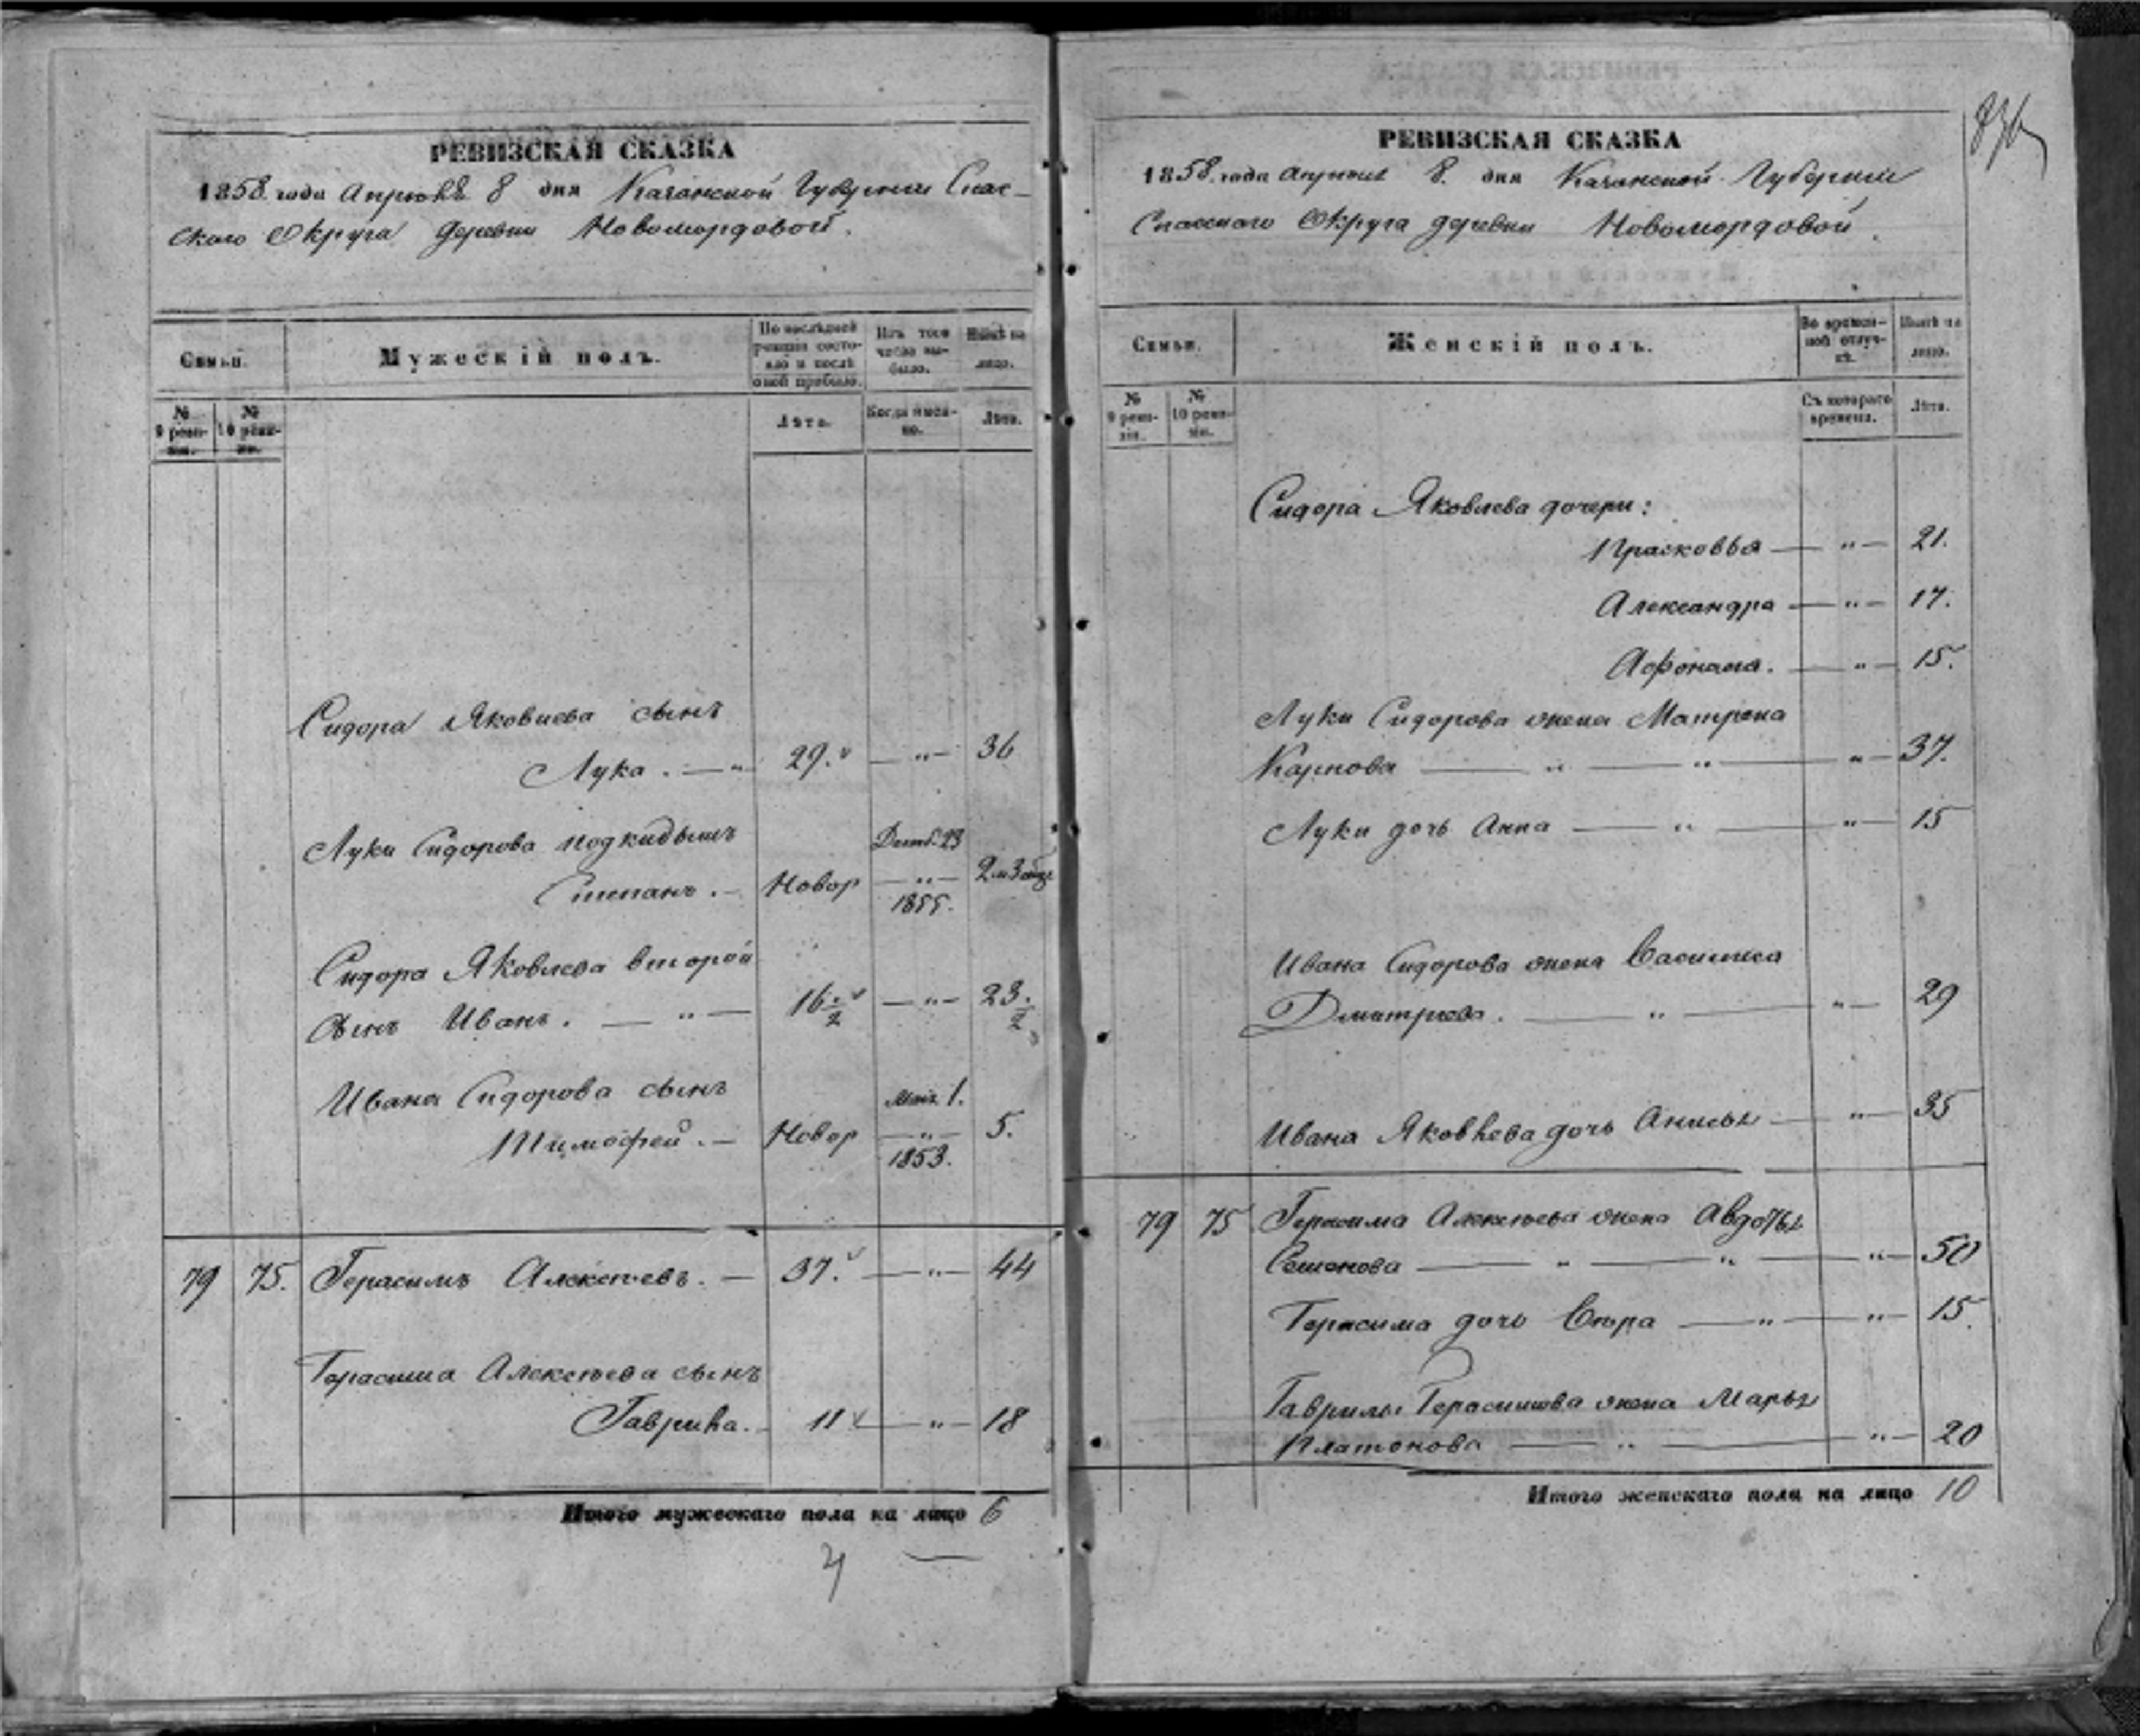 РЕВИЗСКАЯ СКАЗКА
1858 года Апрѣля 8 дня Казанской Губерніи Спас-
скаго Округа деревни Новомордовой.
Семьи.
Мужескій полъ.
По послѣдней ревизіи состо-яло и послѣ оной прибыло.
Изъ того числа вы-было.
Нынѣ на лицо.
№ 9 реви-зіи.
№ 10 реви-зіи.
Лѣта.
Когда имен-но.
Лѣта.
Сидора Яковлева сынъ
Лука . — " 29. — " — 36
Луки Сидорова подкидышъ Декаб. 23
Степанъ . — Новор — " — 2 и 3 мѣ
1855.
Сидора Яковлева второй
сынъ Иванъ . — " — 16 ./2 — " — 23 ./2
Ивана Сидорова сынъ Мая 1.
Тимофей . — Новор — " — 5.
1853.
79 75. Герасимъ Алексѣевъ. — 37. — " — 44
Герасима Алексѣева сынъ
Гаврила. 11 — " — 18
Итого мужескаго пола на лицо 6
4 —
РЕВИЗСКАЯ СКАЗКА
1858 года Апрѣля 8. дня Казанской Губерніи
Спасскаго Округа деревни Новомордовой.
Семьи.
Женскій полъ.
Во времен-ной отлуч-кѣ.
Нынѣ на лицо.
№ 9 реви-зіи.
№ 10 реви-зіи.
Съ котораго времени.
Лѣта.
Сидора Яковлева дочери:
Прасковья — " — 21.
Александра — " — 17.
. — " — 15.
Луки Сидорова жена Матрена
Карпова — " — " — " — 37.
Луки дочь Анна — " — " — 15
Ивана Сидорова жена Василиса
Дмитріева . — " — " — 29
Ивана Яковлева дочь Анисья — " — 35
79 75 Герасима Алексѣева жена Авдотья
Семенова — " — " — " — 50
Герасима дочь Вѣра — " — " — 15.
Гаврилы Герасимова жена Марья
Платонова — " — " — 20
Итого женскаго пола на лицо 10